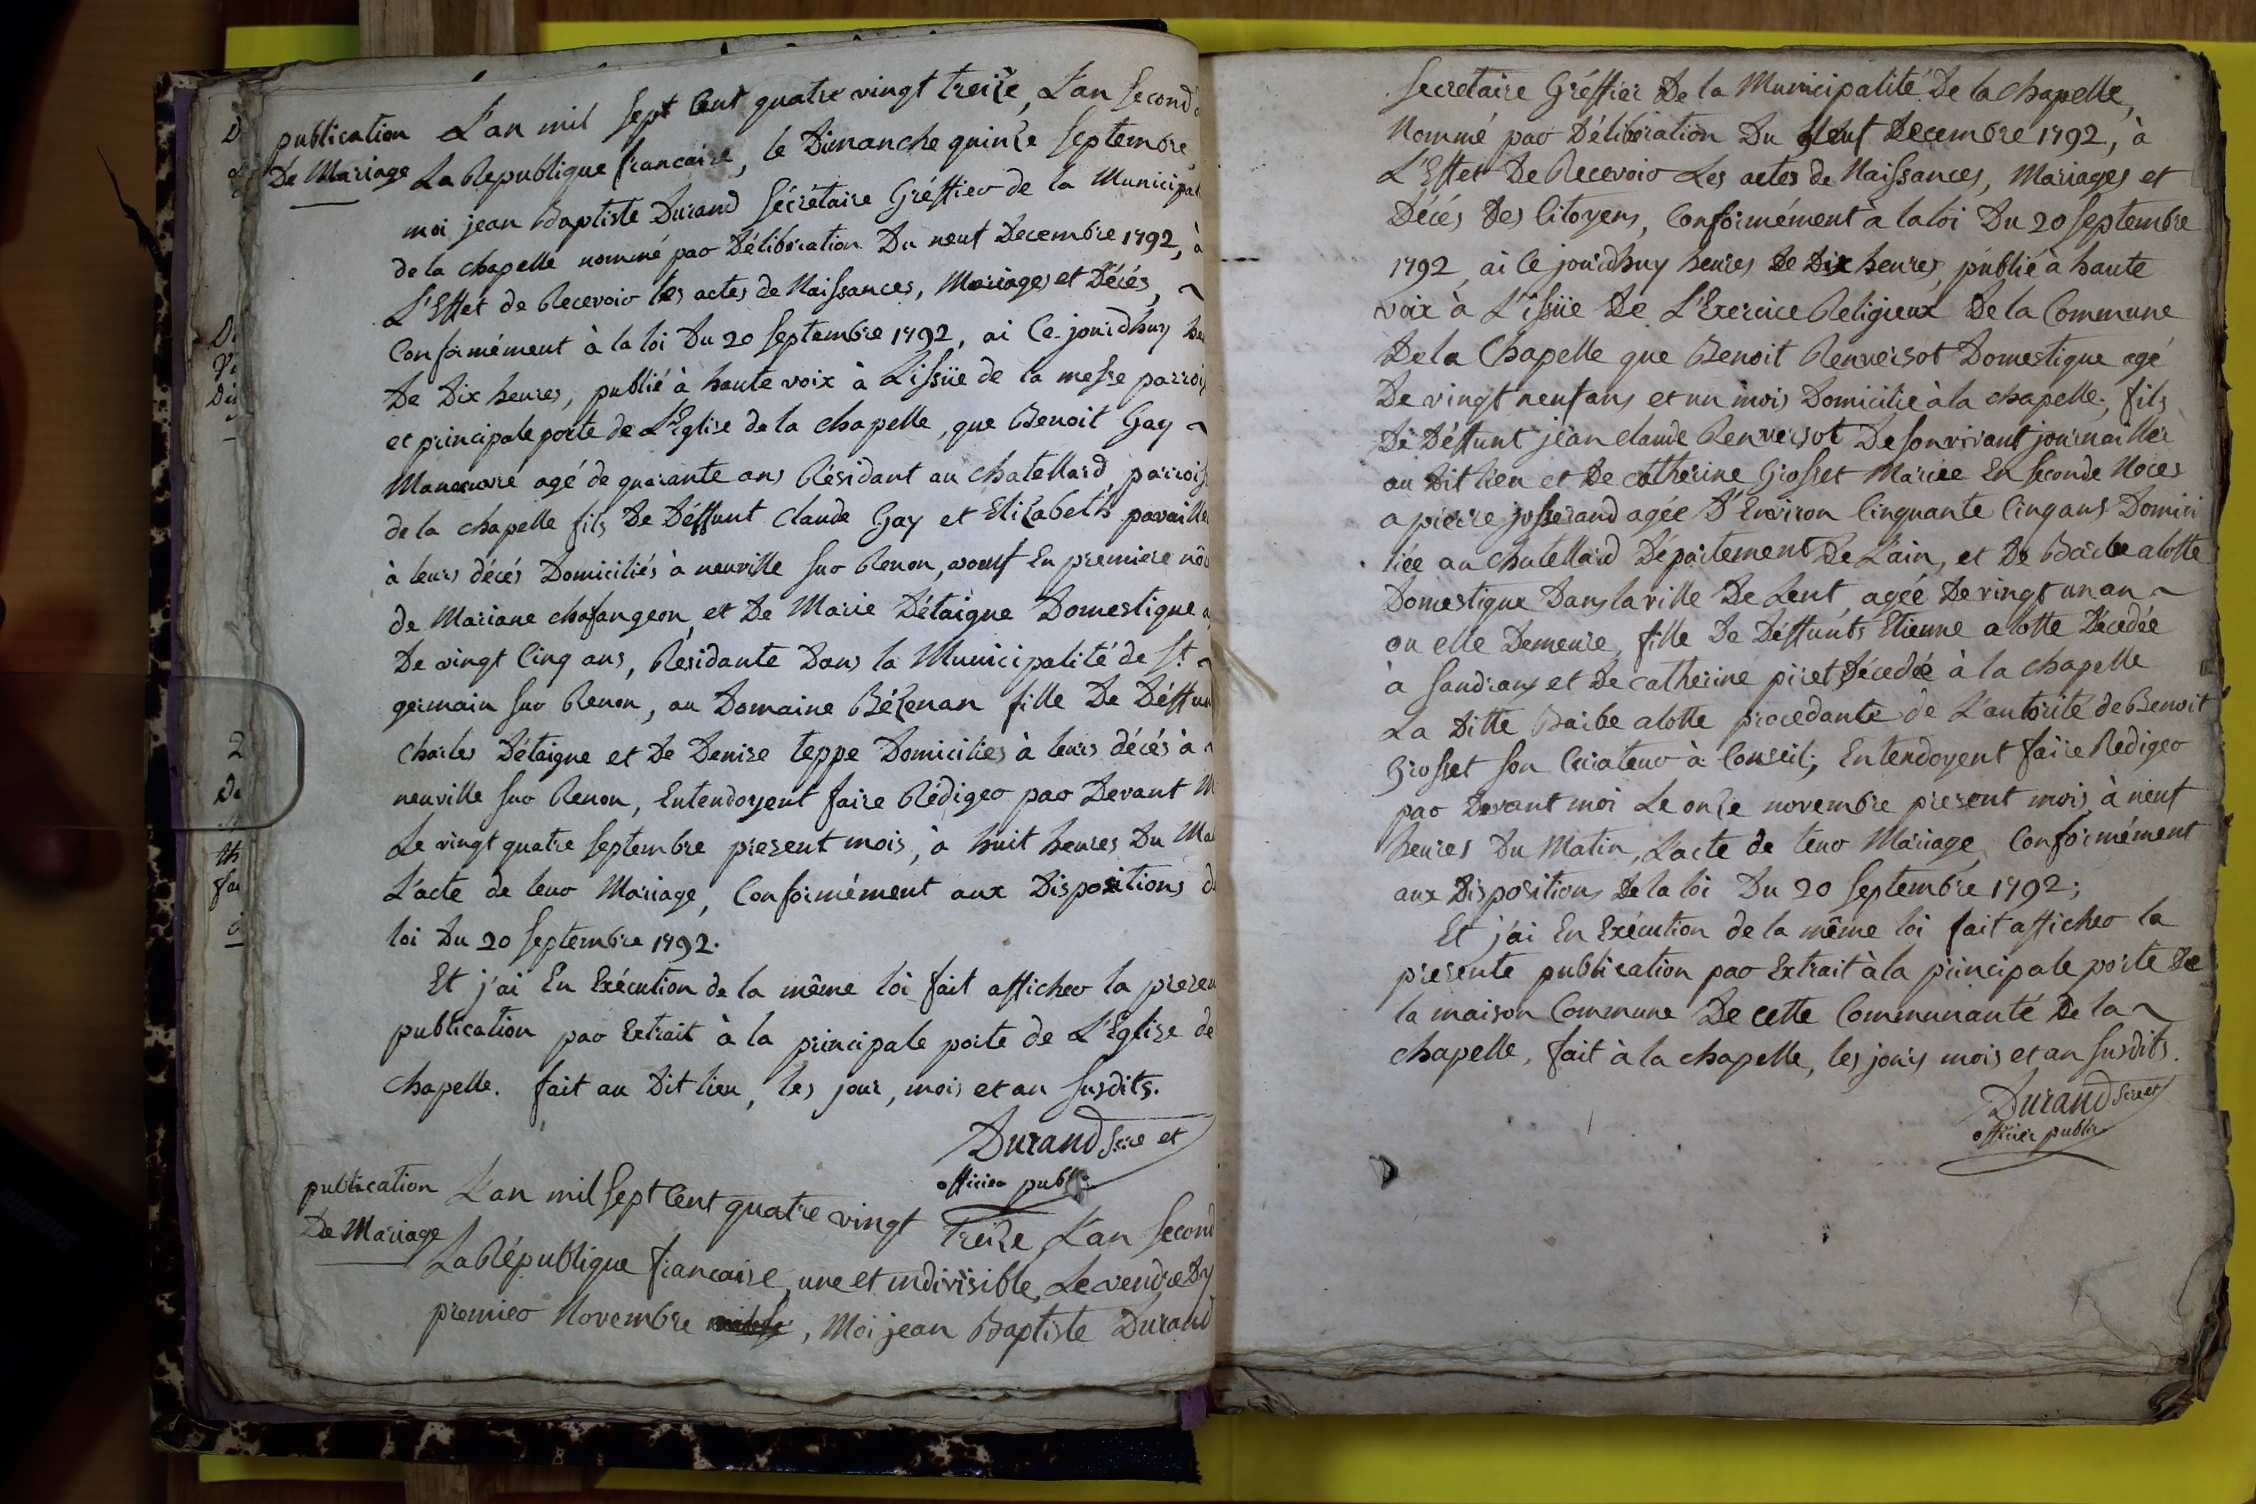 publication
De Mariage
L'an mil sept Cent quatre vingt treize, L'an second
La Republique francaise, le Dimanche quinze septembre,
moi jean Baptiste Durand Sécrétaire Gréffier de la Municipal
de la chapelle nommé par Délibération Du neuf Decembre 1792, à
L'Effet de Recevoir les actes de Naissances, Mariages et Décés,
Conformément à la loi Du 20 septembre 1792, ai Ce jourdhuy heu
De Dix heures, publié à haute voix à L'issüe de la messe parrois
et principale porte de L'Eglise de la chapelle, que Benoit Gay
Manœuvre agé de quarante ans Résidant au chatellard, parroiss
de la chapelle fils De Déffunt Claude Gay et Elizabeth pavaille
à leurs décés Domiciliés à neuville sur Renon, veuf En premiere nôc
de Mariane chafangeon, et De Marie Détaigne Domestique a
De vingt Cinq ans, Residante Dans la Municipalité de St
germain sur Renon, au Domaine Bézenan fille De Déffun
Charles Détaigne et De Denise teppe Domicilies à leurs décés à
neuville sur Renon, Entendoyent faire Rédiger par Devant M
Le vingt quatre septembre present mois, à huit heures Du Ma
L'acte de leur Mariage, Conformément aux Dispositions d
loi Du 20 septembre 1792.
Et j'ai En Exécution de la même loi fait afficher la presen
publication par Extrait à la principale porte de L'Eglise de
chapelle. fait au Dit lieu, les jour, mois et an susdits.
Durand Scre et
officier public
publication
De Mariage
L'an mil sept Cent quatre vingt Treize L'an second
La République francaise, une et indivisible, Le vendredy
premier Novembre, Moi jean Baptiste Durand
secretaire Gréffier De la Municipalité De la chapelle,
Nommé par Délibération Du neuf Decembre 1792, à
L'Effet De Recevoir Les actes de Naissances, Mariages et
Décés Des Citoyens, Conformément à la loi Du 20 septembre
1792, ai Ce jourdhuy heures De Dix heures, publié à haute
voix à L'issüe De L'Exercice Religieux De la Commune
De la Chapelle que Benoit Renversot Domestique agé
De vingt neuf ans et un mois Domicilié à la chapelle, fils
De Déffunt jean claude Renversot De son vivant journallier
au Dit lieu et De catherine Grosset Mariée En seconde Noces
a pierre josserand agée D'Environ Cinquante Cinq ans Domici
liée au chatellard Département De L'ain, et De Barbe alotte
Domestique Dans la ville De Lent, agée De vingt un an
ou elle Demeure, fille De Déffunts Etienne alotte Décedée
à sandrans et De catherine piret Décedée à la chapelle
La Ditte Barbe alotte procedante de L'autorité de Benoit
Grosset son Curateur à Conseil; Entendoyent faire Rediger
par Devant moi Le onze novembre present mois, à neuf
heures Du Matin, L'acte de leur Mariage, Conformément
aux Dispositions De la loi Du 20 septembre 1792;
Et j'ai En Exécution de la même loi fait afficher la
presente publication par Extrait à la principale porte De
la maison Commune De cette Communauté De la
chapelle, fait à la chapelle, les jours mois et an susdits.
Durand Scre et
officier public